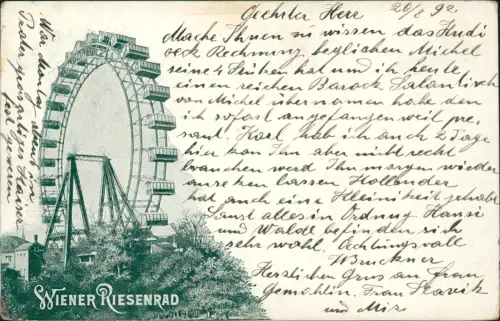 20/8 92
Geehrter Herr
Mache Ihnen zu wissen, das Kudi
seck Rechnung beglichen Michel
seine 4 Stühen hat und ich heute
einen reichen Barock Salontisch
von Michel übernomen habe den
ich sofort angefangen weil pre
sant. Karl hab ich auch 2 Tage
hier von Ihm aber nicht recht
brauchen werd Ihn morgen wieder
ansuchen lassen Hollender
hat auch eine Kleinikeit gehabt
Sonst alles in Ordnung Hansi
und Waldi befinden sich
sehr wohl. Achtungsvoll
Bruckner
Herzlichen Grus an Frau
Gemahlin. Frau Slavik
und Miz
War Montag abend im
Prater grosartiges Kaiser
fest gewesen
WIENER RIESENRAD